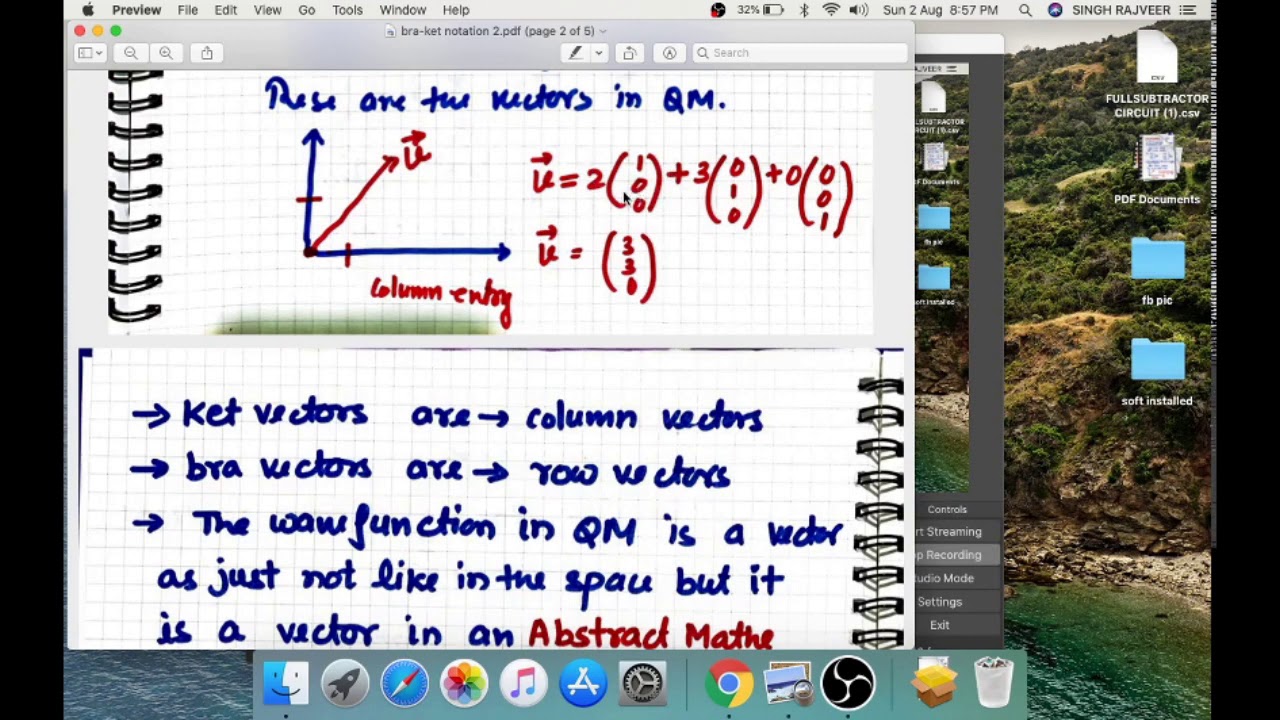 Preview File Edit View Go Tools Window Help 32% Sun 2 Aug 8:57 PM SINGH RAJVEER
bra-ket notation 2.pdf (page 2 of 5)
Search
These are the vectors in QM.
v⃗
v⃗ = 2(1 0 0) + 3(0 1 0) + 0(0 0 1)
v⃗ = (3 3 0)
column entry
→ Ket vectors are → column vectors
→ bra vectors are → row vectors
→ The wavefunction in QM is a vector
as just not like in the space but it
is a vector in an Abstract Mathe
CSV
FULLSUBTRACTOR
CIRCUIT (1).csv
PDF Documents
fb pic
soft installed
fb pic
Controls
rt Streaming
op Recording
Settings
Exit